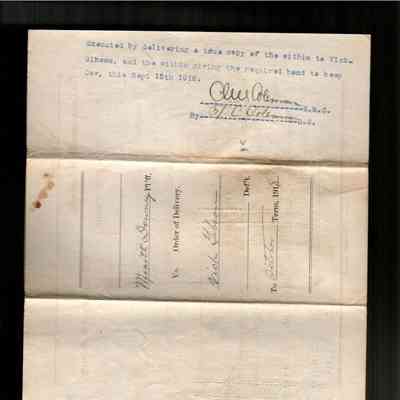 Executed by delivering a true copy of the within to Vick.
Gibson, and the within giving the required bond to keep
Cow, this Sept 15th 1915.
S.B.C.
By
D.S.
Merritt Downing Pl'ff.
Vs. Order of Delivery.
Vick Gibson Def't.
To October Term, 191